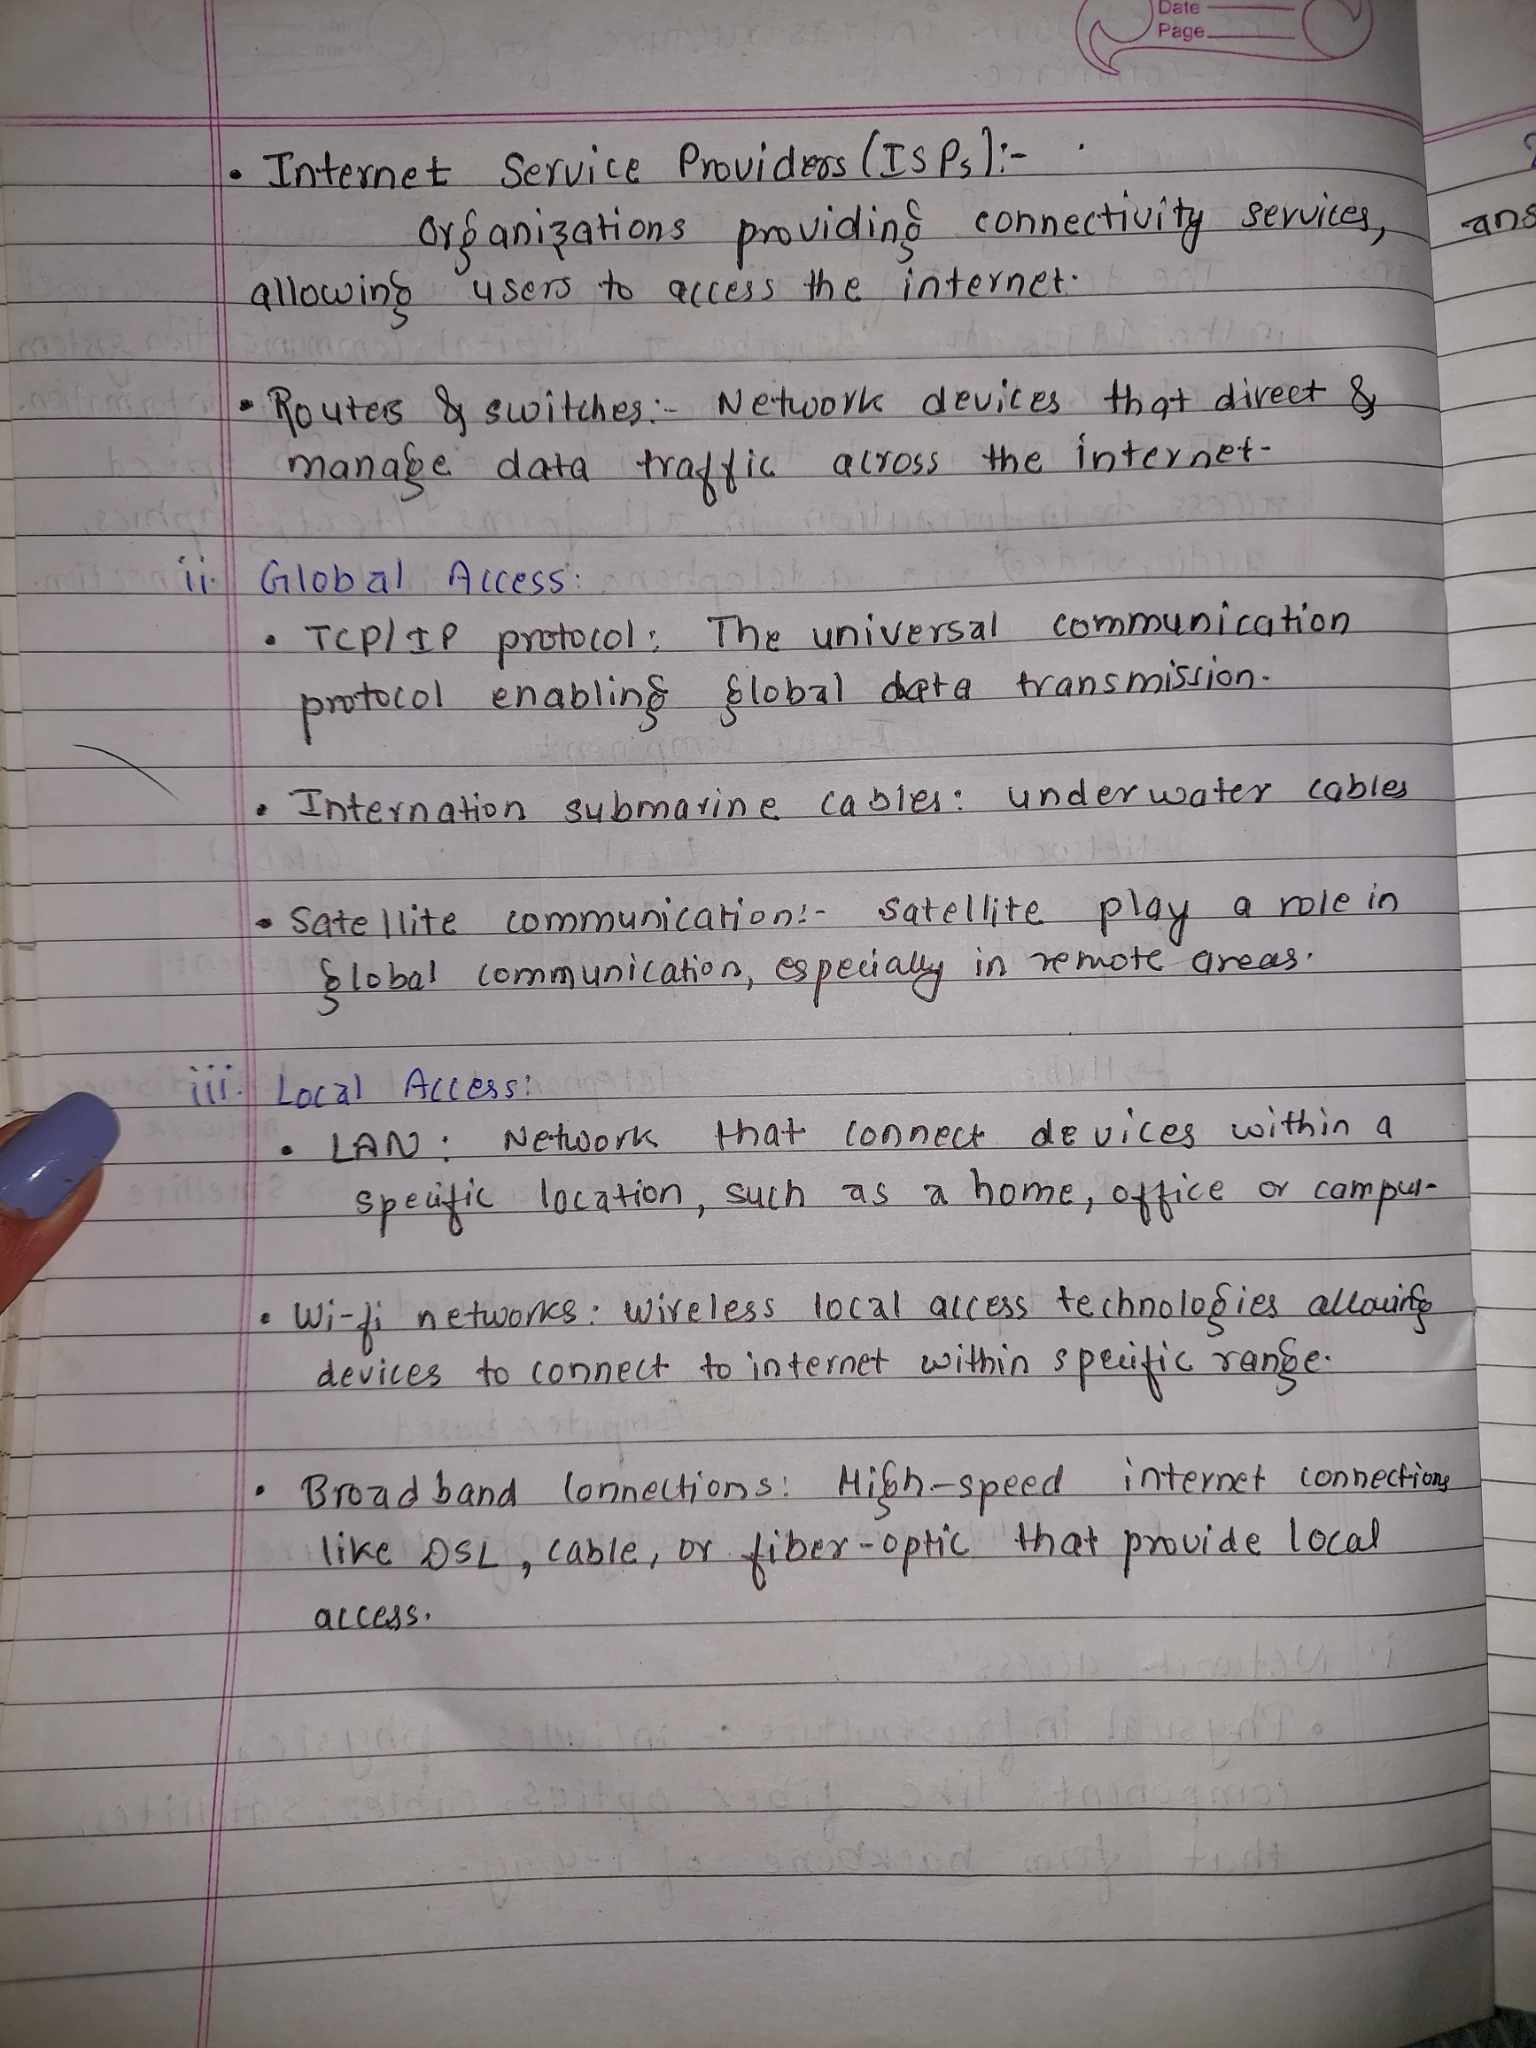 Date
Page
• Internet Service Providers (ISPs):-
Organizations providing connectivity services,
allowing users to access the internet.
• Routers & switches:- Network devices that direct &
manage data traffic across the internet-
ii. Global Access:
• TCP/IP protocol: The universal communication
protocol enabling global data transmission.
• Internation submarine cables: underwater cables
• Satellite communication:- Satellite play a role in
global communication, especially in remote areas.
iii. Local Access:
• LAN: Network that connect devices within a
specific location, such as a home, office or campus-
• Wi-fi networks: wireless local access technologies allowing
devices to connect to internet within specific range.
• Broadband connections: High-speed internet connections
like DSL, cable, or fiber-optic that provide local
access.
ans